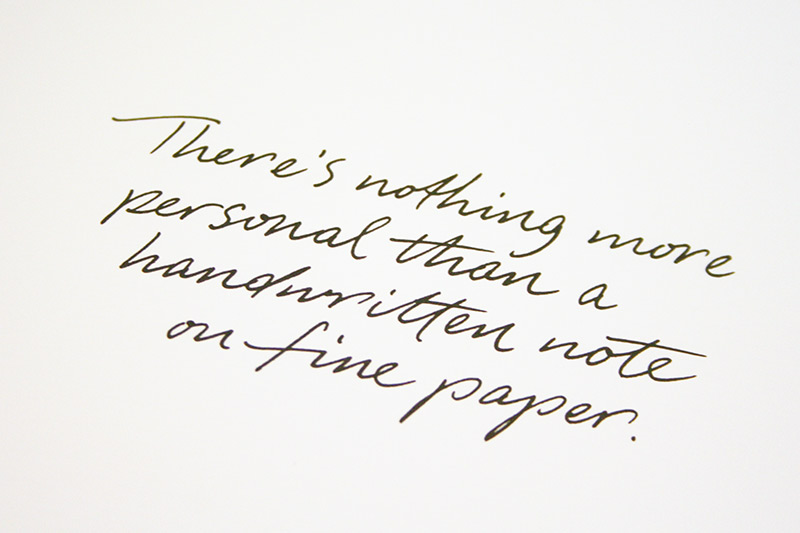 There's nothing more
personal than a
handwritten note
on fine paper.